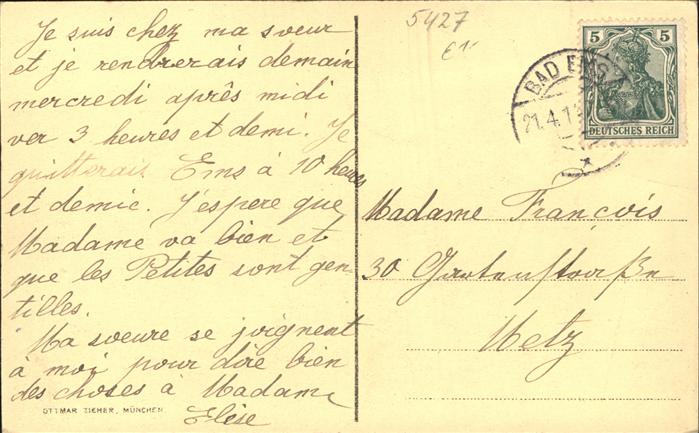 Je suis chez ma soeur
et je rendrerais demain
mercredi après midi
ver 3 heures et demi. Je
quitterais Ems à 10 heures
et demie. J'espere que
Madame va bien et
que les Petites sont gen
tilles.
Ma soeure se joignent
à moi pour dire bien
des choses à Madame
Elise
OTTMAR ZIEHER, MÜNCHEN.
5427
BAD EMS
21.4.1
5 5
DEUTSCHES REICH
Madame François
30 Gartenstraße
Metz